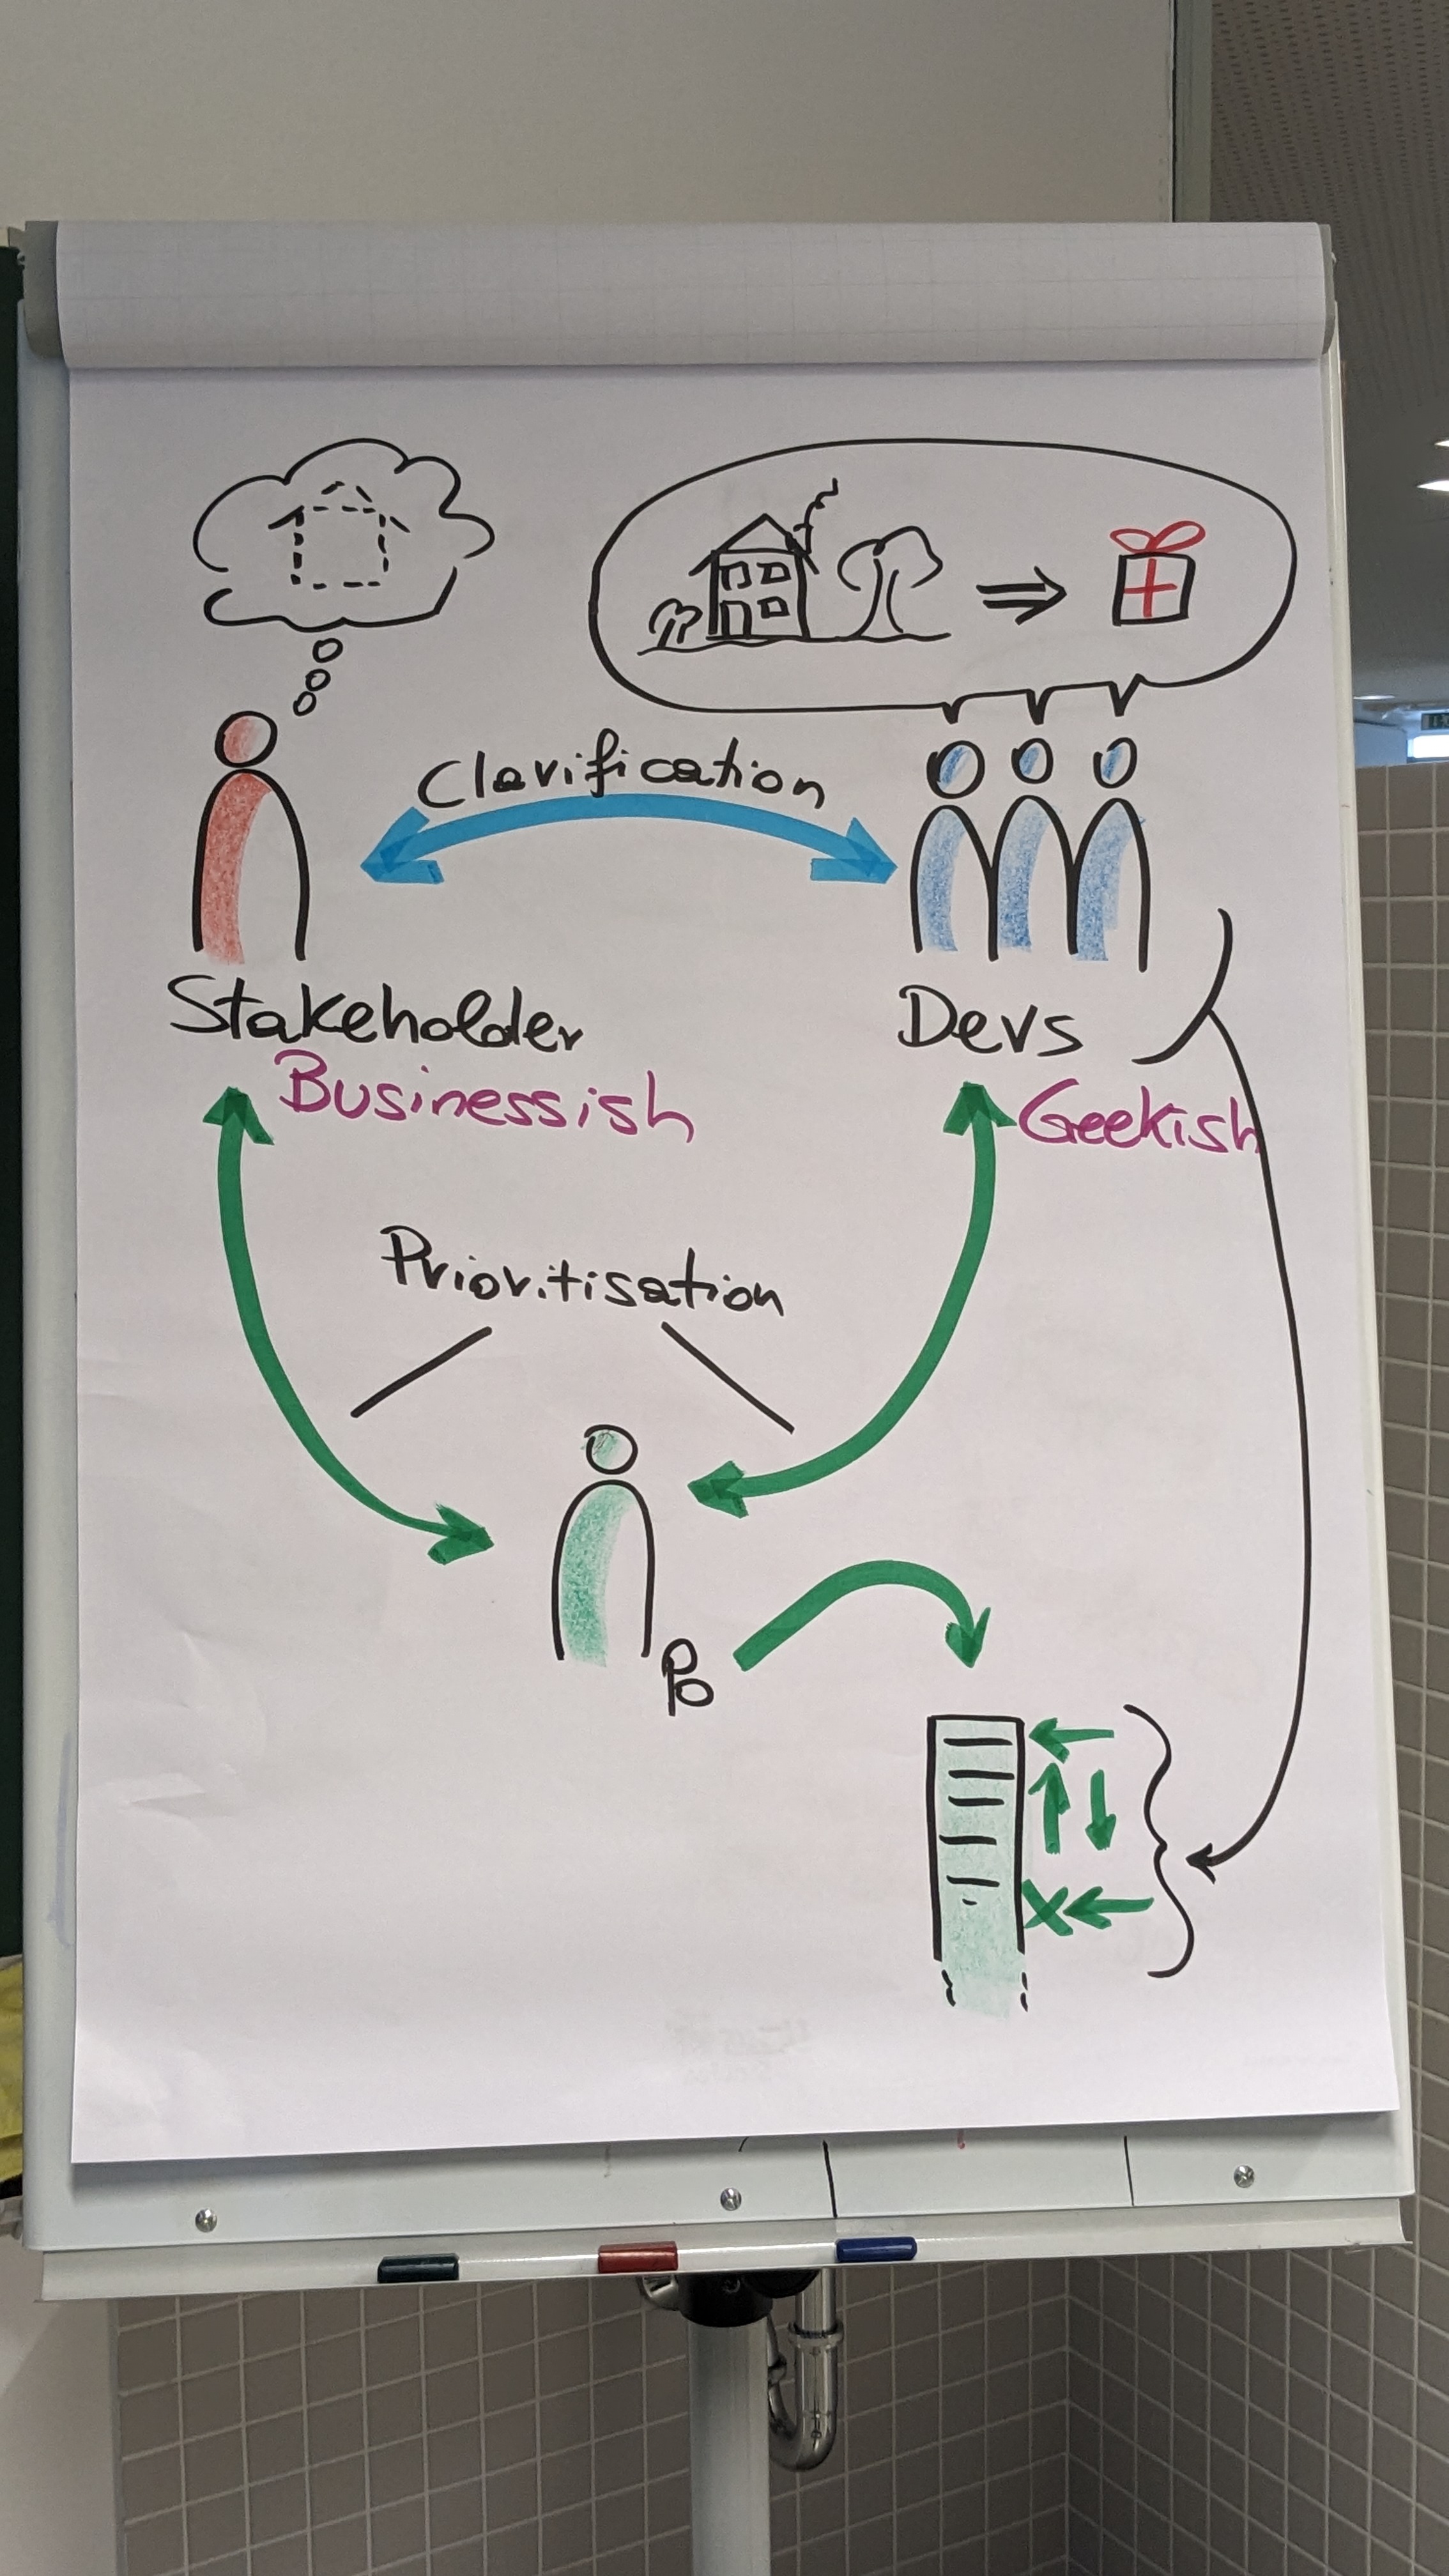 Clarification
Stakeholder
Businessish
Devs
Geekish
Prioritisation
PO